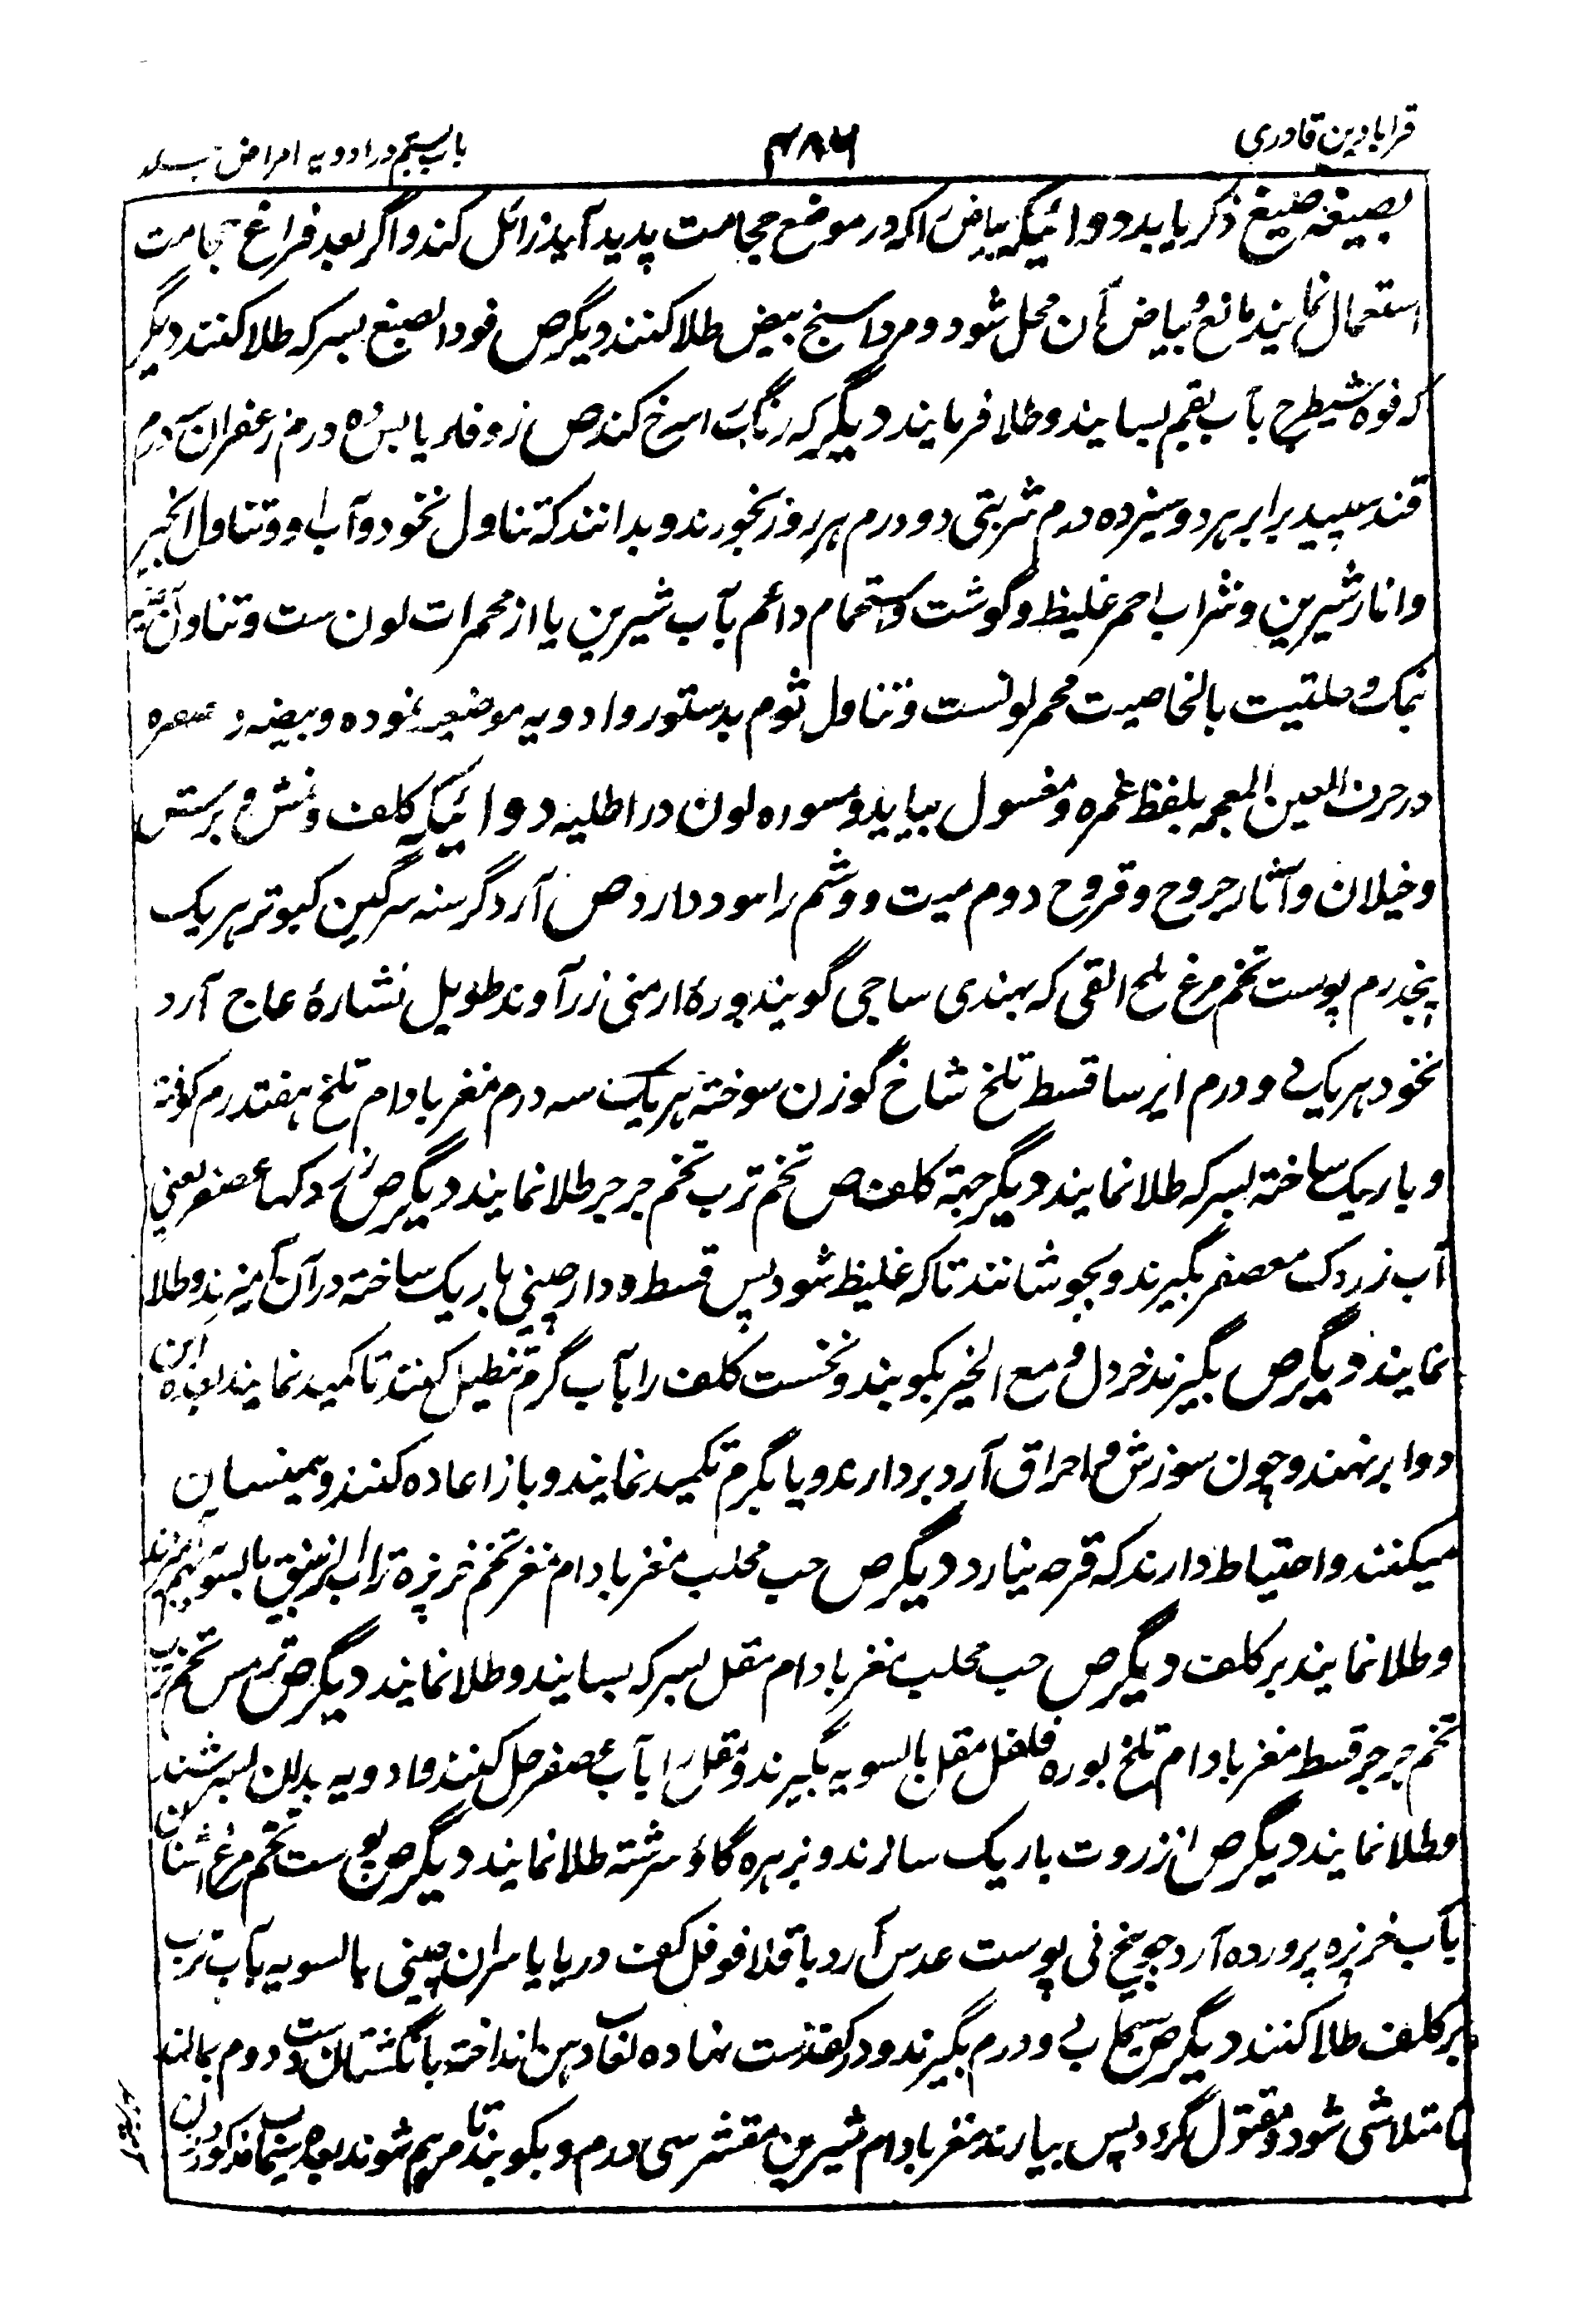 قرابادین قادری
۴۸۶
باب بستم در ادویه امراض جلد
بصیغه صبغ ذکر یابد دوائیکه بیاض را که در موضع حجامت پدید آید زائل کند و اگر بعد فراغ حجامت
استعمال نمایند مانع بیاض آن محل شود ص مرداسنج ببیض طلا کنند دیگر ص فوة الصبغ بسرکه طلا کنند دیگر
که فوه شیطرج بآب بقم بسایند و طلا فرمایند دیگر که رنگ را سرخ کند ص زوفاء یابس ده درم زعفران سه درم
قند سپید برابر هر دو سیزده درم شربتی دو درم هر روز بخورند و بدانند که تناول نخود و آب او و تناول انجیر
و انار شیرین و شراب احمر غلیظ و گوشت و استحمام دائم بآب شیرین یا از محمرات لون ست و تناول
نمک و حلتیت بالخاصیت محمر لونست و تناول ثوم بدستور و ادویه موضعیه نموده و بیضه و
در حرف الغین المعجمه بلفظ غمره و مغسول بیاید و سوره لون در اطلیه دوائیکه کلف و نمش و برش
و خیلان و آثار جروح و قروح و دم میت و وشم را سود دارد ص آرد کرسنه سرگین کبوتر هریک
پنجدرم پوست تخم مرغ ملح القلی که بهندی ساجی گویند بوره ارمنی زرآوند طویل نشارهٔ عاج آرد
نخود هریک دو درم ایرسا قسط تلخ شاخ گوزن سوخته هریک سه درم مغز بادام تلخ هفتدرم کوفته
و باریک ساخته بسرکه طلا نمایند دیگر جهة کلف ص تخم ترب تخم جرجیر طلا نمایند دیگر ص زردک عصفر یعنی
آب زردک معصفر بگیرند و بجوشانند تا که غلیظ شود پس قسط و دارچینی باریک ساخته در آن آمیزند و طلا
نمایند دیگر ص بگیرند خردل و مع انجیر بکوبند و نخست کلف را بآب گرم تنطیل کنند تا کمید نمایند بعده این
دوا بر نهند و چون سوزش و احراق آرد بردارند و بآب گرم تکمید نمایند و باز اعاده کنند و همینسان
میکنند و احتیاط دارند که قرحه نیارد دیگر ص حب محلب مغز بادام مغز تخم خربزه تراب الزیبق بالسویه بهم آمیزند
و طلا نمایند بر کلف دیگر ص حب محلب مغز بادام مقل بسرکه بسایند و طلا نمایند دیگر ص ترمس تخم ترب
تخم جرجیر قسط مغز بادام تلخ بوره فلفل مقل بالسویه بگیرند و مقل را بآب عصفر حل کنند و ادویه بدان بسرشند
و طلا نمایند دیگر ص انزروت باریک سازند و بزهره گاؤ سرشته طلا نمایند دیگر ص پوست تخم مرغ اشنان
بآب خربزه پرورده آرد جو بیخ نی پوست عدس آرد باقلا فوفل کف دریا یا سران چینی بالسویه بآب ترب
بر کلف طلا کنند دیگر ص سیماب دو درم بگیرند و در کفدست نهاده لعاب دهن انداخته بانگشتان دست دوم بمالند
تا متلاشی شود و مقتول گردد پس بیارند مغز بادام شیرین مقشر سی درم و بکوبند تا مرهم شوند بعده سیماب مذکور در آن